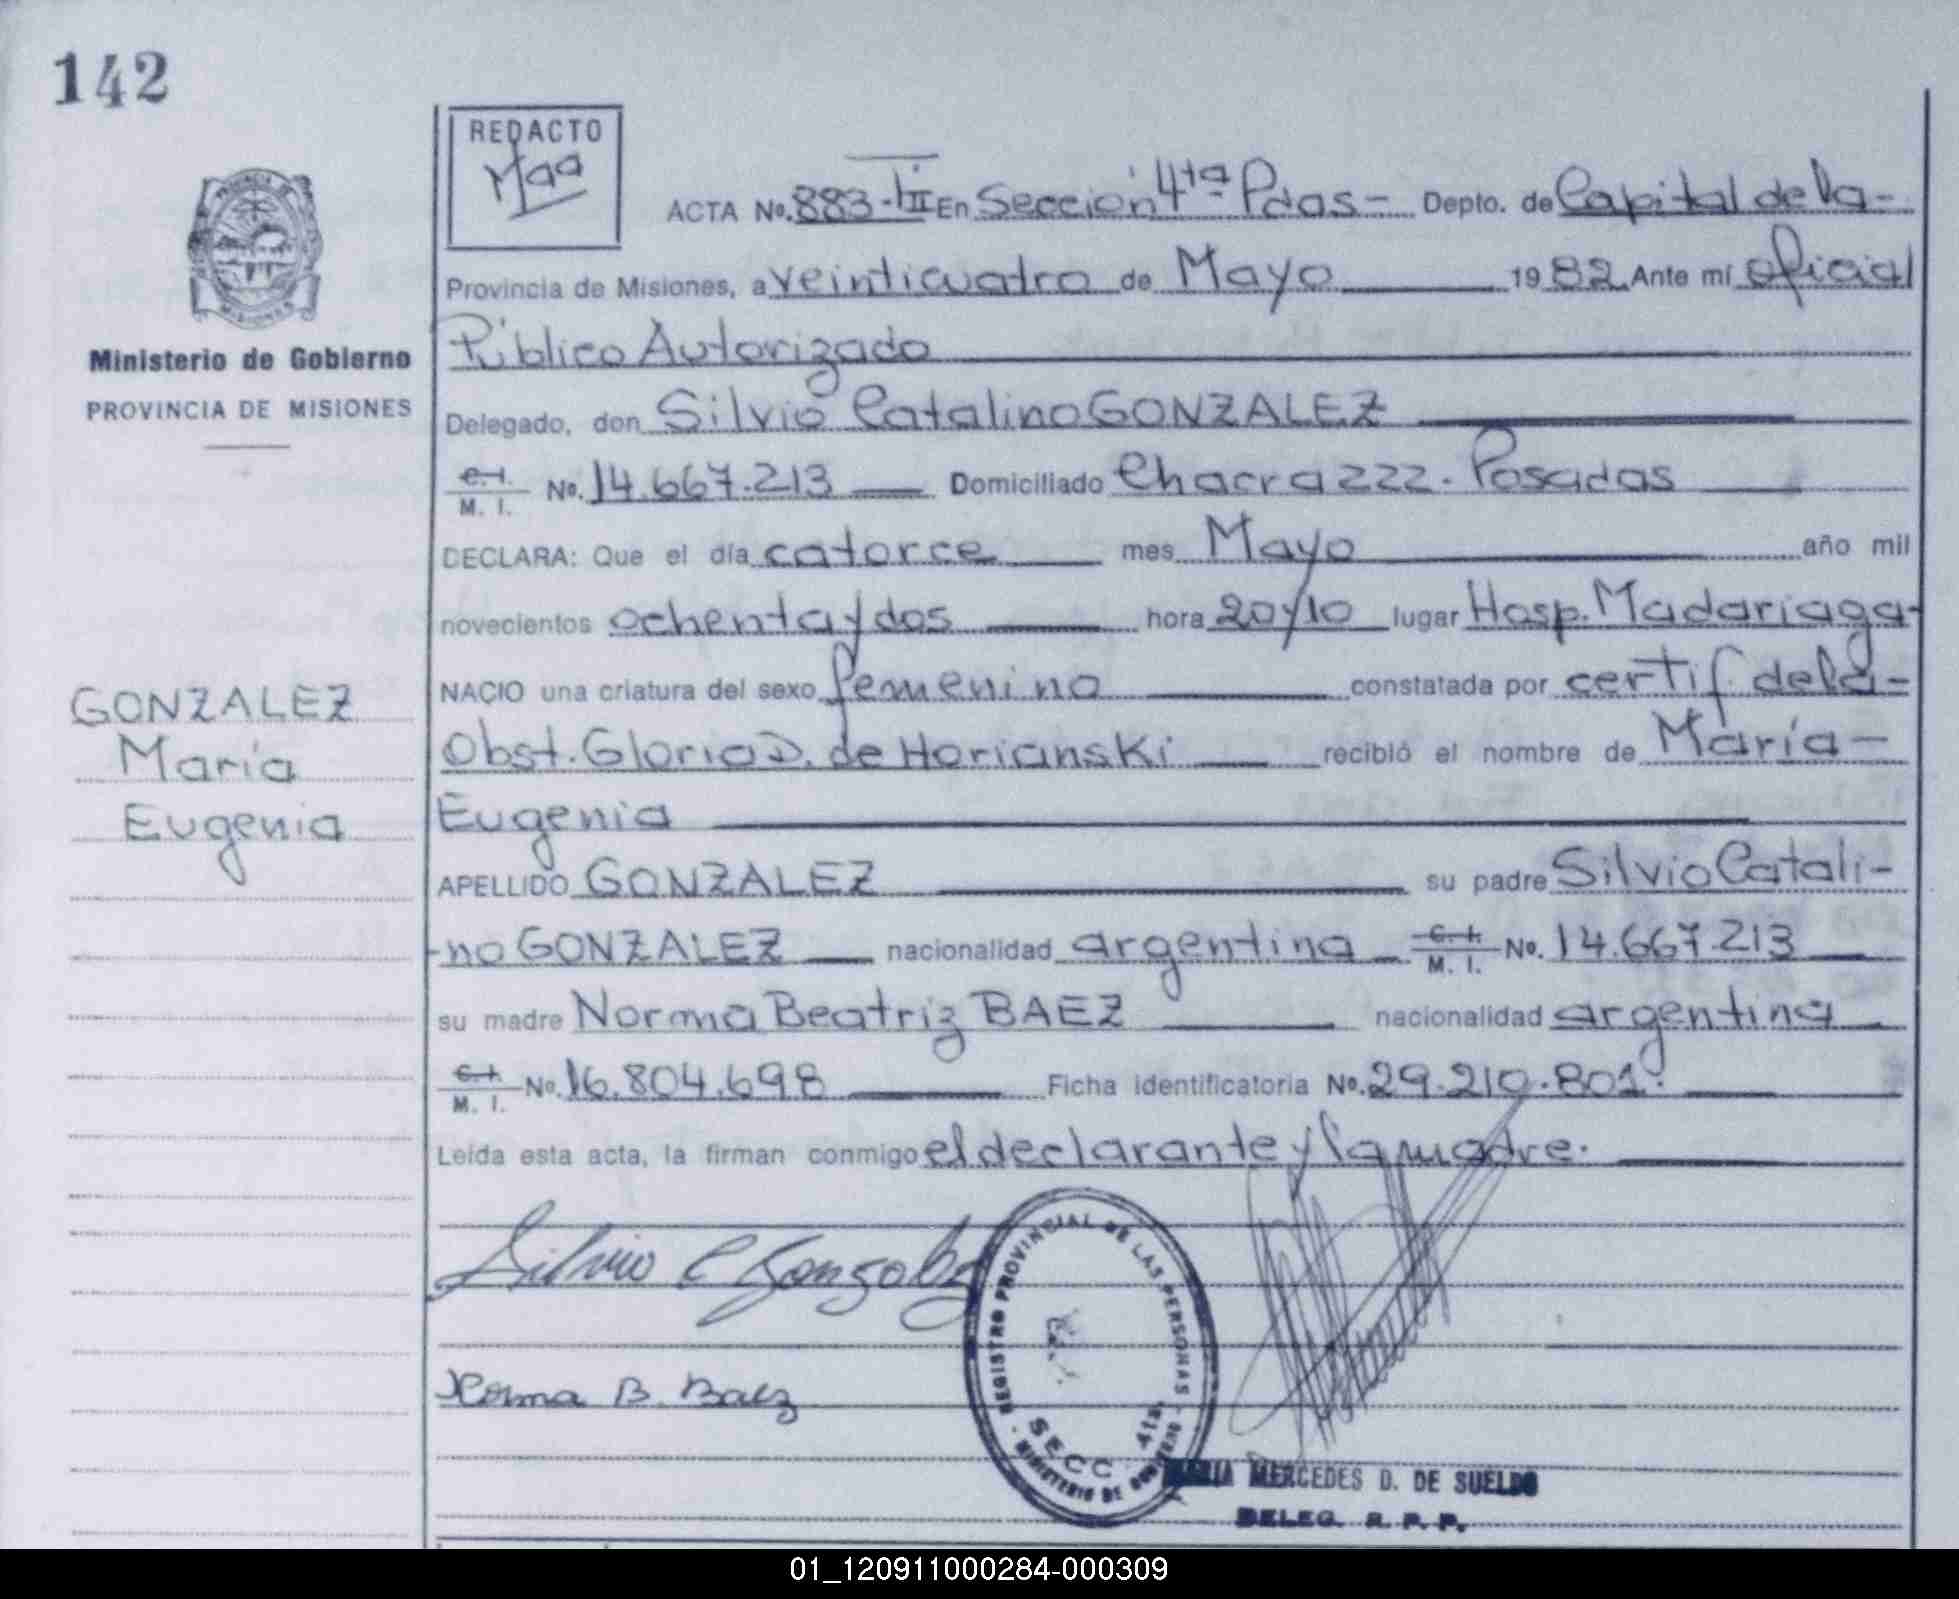 142
REDACTO
ACTA No. 883-III En Sección 4ta Pdas- Depto. de Capital de la-
Provincia de Misiones, a veinticuatro de Mayo 1982 Ante mí oficial
Público Autorizado
Delegado, don Silvio Catalino GONZALEZ
C. I.
M. I. No. 14.667.213 Domiciliado Chacra 222. Posadas
DECLARA: Que el día catorce mes Mayo año mil
novecientos ochenta y dos hora 20y10 lugar Hosp. Madariaga-
NACIO una criatura del sexo femenino constatada por certif de la-
Obst. Gloria D. de Horianski recibió el nombre de María-
Eugenia
APELLIDO GONZALEZ su padre Silvio Catali-
-no GONZALEZ nacionalidad argentina C. I. M. I. No. 14.667.213
su madre Norma Beatriz BAEZ nacionalidad argentina
C. I.
M. I. No. 16.804.698 Ficha identificatoria No. 29.210.801.
Leída esta acta, la firman conmigo el declarante y la madre.
Silvio C Gonzalez
Norma B. Baez
PROVINCIA DE MISIONES
Ministerio de Gobierno
PROVINCIA DE MISIONES
GONZALEZ
María
Eugenia
REGISTRO PROVINCIAL DE LAS PERSONAS
- MINISTERIO DE GOBIERNO -
SECC. 4ta.
MARIA MERCEDES D. DE SUELDO
DELEG. R. P. P.
01_120911000284-000309